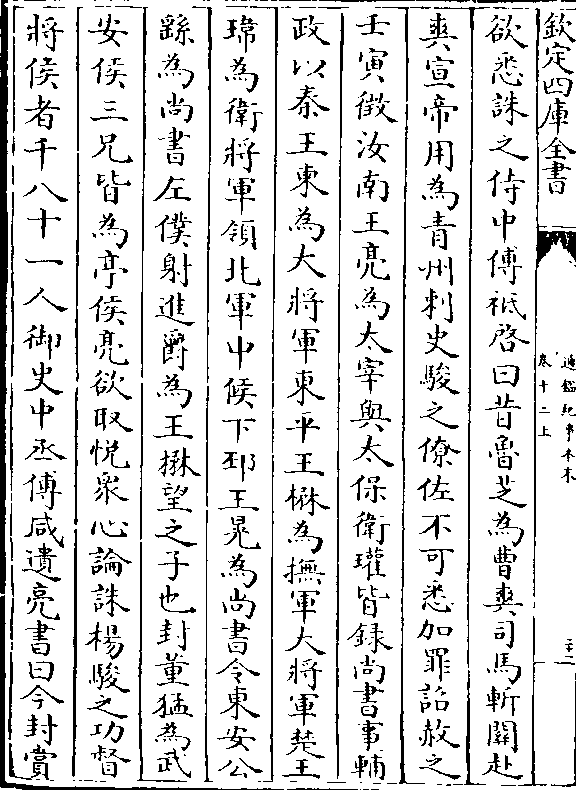 欽定四庫全書
通鑑紀事本末
卷十二上
欲悉誅之侍中傅祗啓曰昔魯芝為曹爽司馬斬關赴
爽宣帝用為青州刺史駿之僚佐不可悉加罪詔赦之
壬寅徵汝南王亮為太宰與太保衛瓘皆録尚書事輔
政以秦王柬為大將軍東平王楙為撫軍大將軍楚王
瑋為衛將軍領北軍中候下邳王晃為尚書令東安公
繇為尚書左僕射進爵為王楙望之子也封董猛為武
安侯三兄皆為亭侯亮欲取悦衆心論誅楊駿之功督
將侯者千八十一人御史中丞傅咸遺亮書曰今封賞